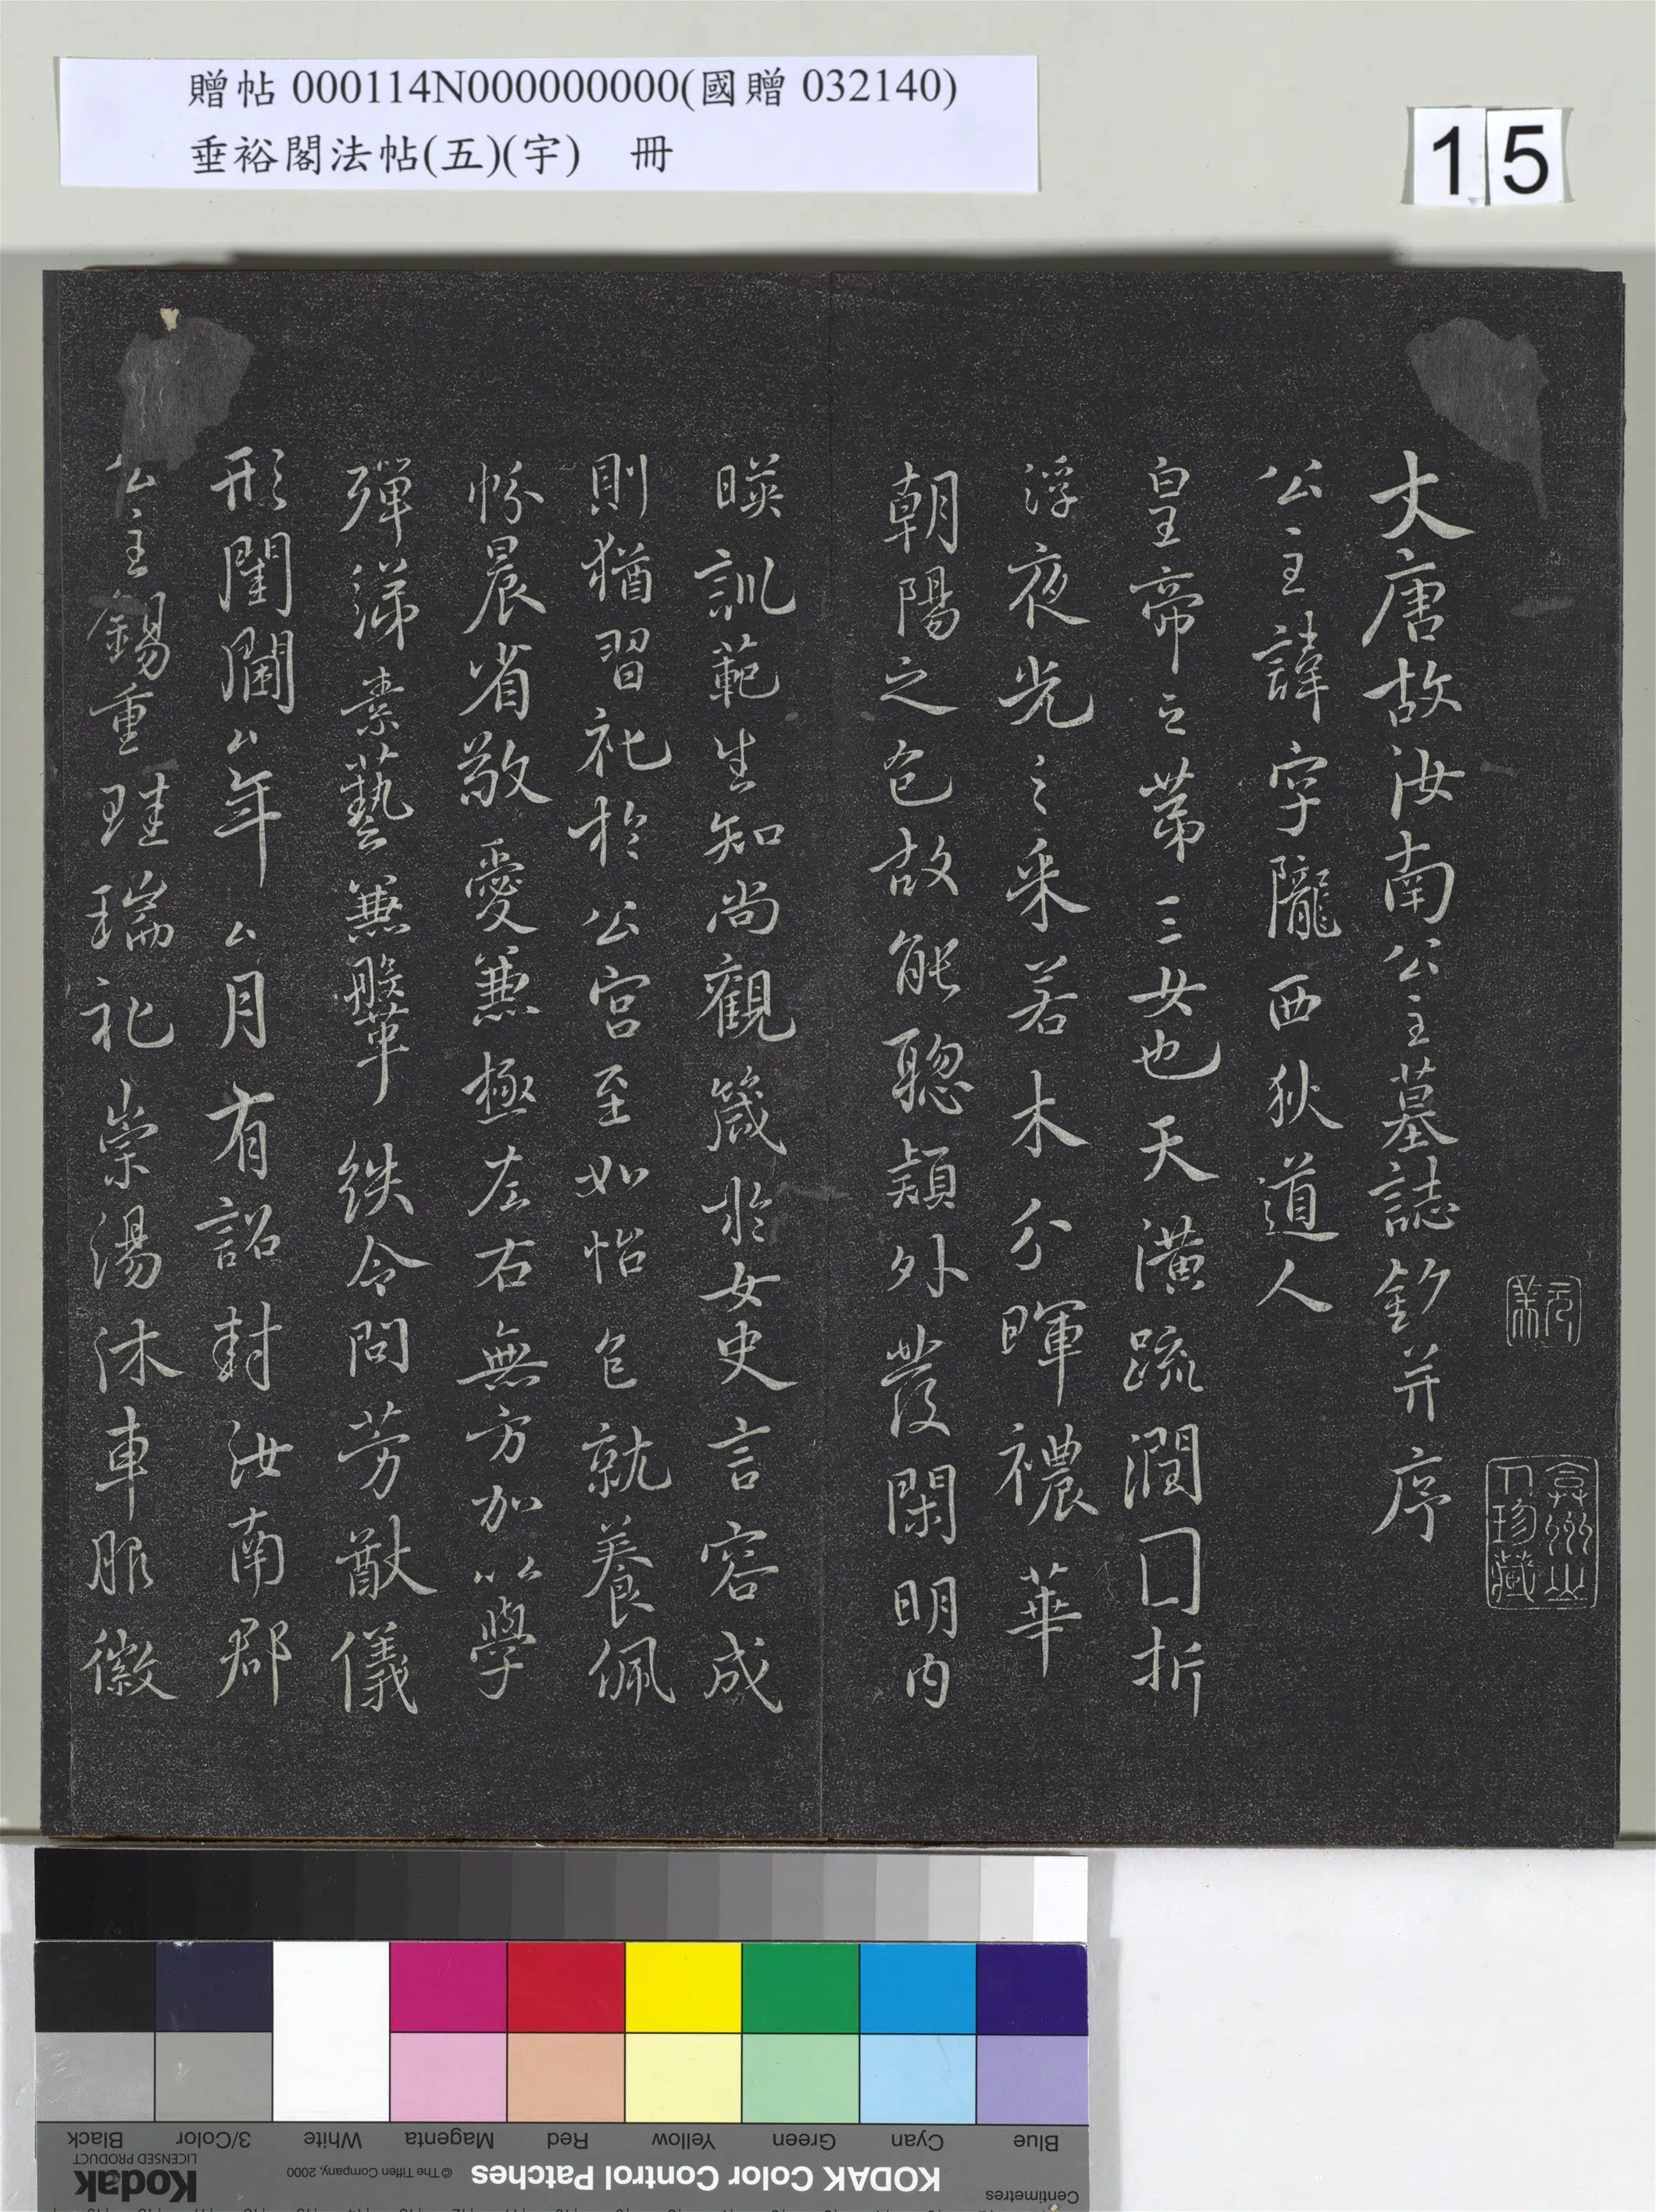 贈帖 000114N000000000(國贈 032140)
垂裕閣法帖(五)(宇) 冊
15
大唐故汝南公主墓誌銘并序
公主諱字隴西狄道人
皇帝之第三女也天潢疏潤囗折
浮夜光之采若木分暉襛華
朝陽之色故能聰穎外發閑明內
暎訓範生知尚觀箴於女史言容成
則猶習礼於公宮至如怡色就養佩
帉晨省敬愛兼極左右無方加以學
殫綈素藝兼鞶䋺令問芳猷儀
形閨閫厶年厶月有詔封汝南郡
公主錫重珪瑞礼崇湯沐車服徽
弇州山人珍藏
Kodak
LICENSED PRODUCT
Black
3/Color
White
Magenta
Red
Yellow
Green
Cyan
Blue
© The Tiffen Company, 2000
KODAK Color Control Patches
Centimetres